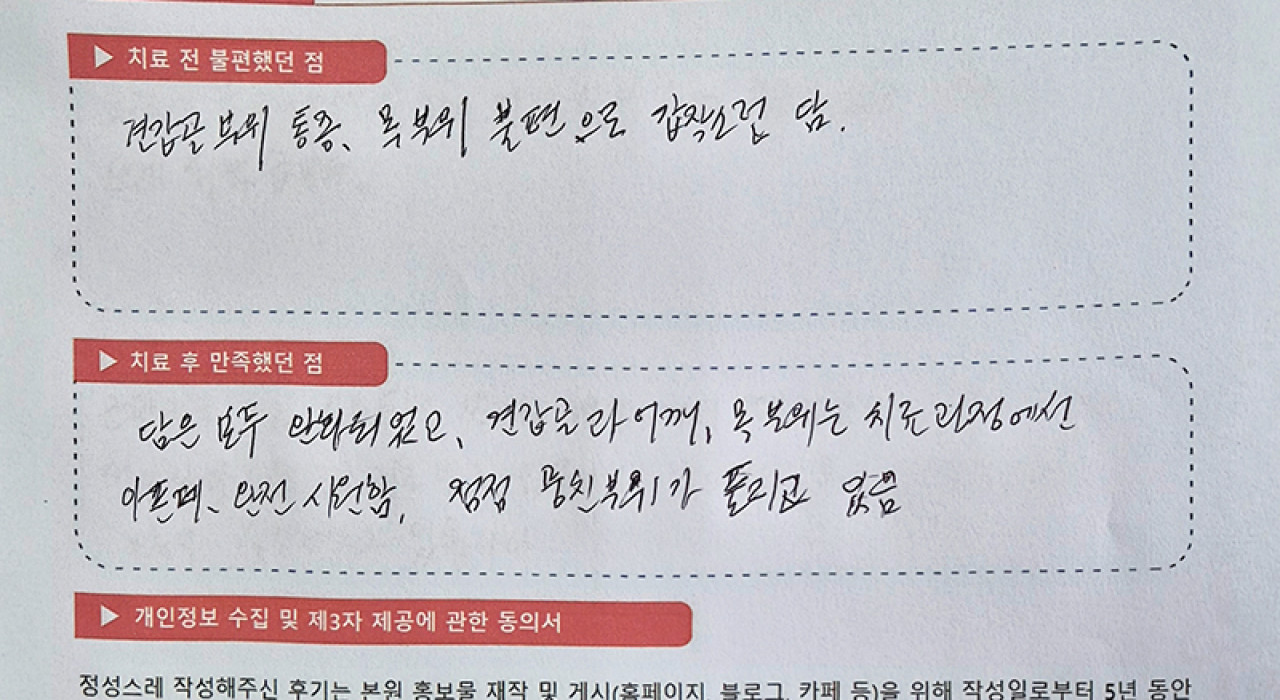 ▶ 치료 전 불편했던 점
견갑골 부위 통증, 목 부위 불편으로 갑작스럽 담.
▶ 치료 후 만족했던 점
담은 모두 완화되었고, 견갑골과 어깨, 목 부위는 치료과정에선
아픈데, 완전 시원함, 점점 뭉친부위가 풀리고 있음
▶ 개인정보 수집 및 제3자 제공에 관한 동의서
정성스레 작성해주신 후기는 본원 홍보물 제작 및 게시(홈페이지, 블로그, 카페 등)을 위해 작성일로부터 5년 동안